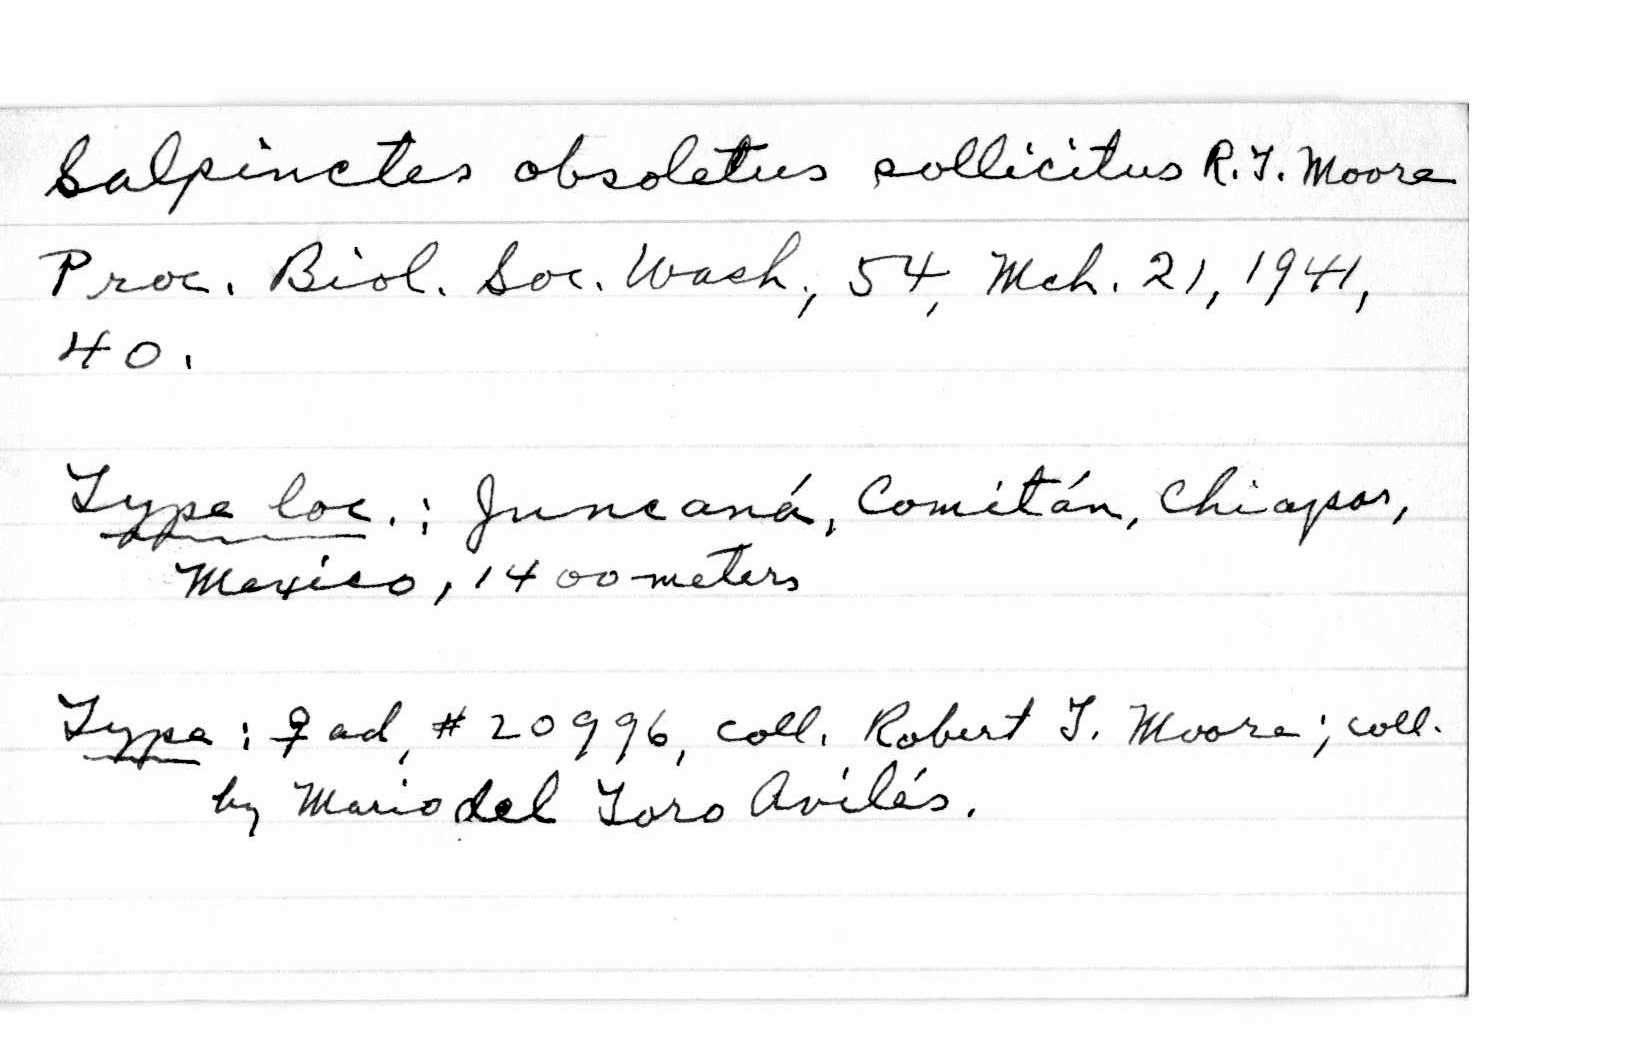 Salpinctes obsoletus sollicitus R.T. Moore
Proc. Biol. Soc. Wash., 54, Mch. 21, 1941,
40.
Type loc.: Juncaná, Comitán, Chiapas,
Mexico, 1400 meters
Type: ♀ ad, #20996, coll. Robert T. Moore; coll.
by Mario del Toro Avilés.